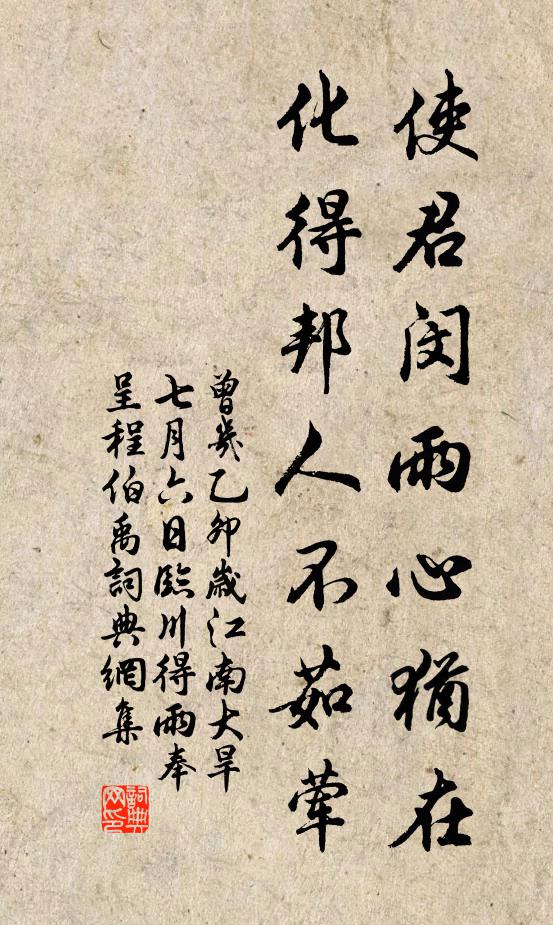 使君闵雨心猶在
化得邦人不茹葷
曾幾乙卯歲江南大旱
七月六日臨川得雨奉
呈程伯禹詞典網集
詞典网印